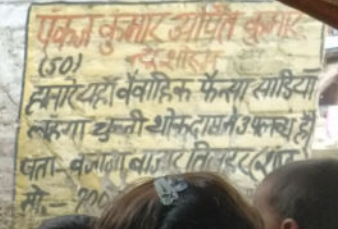 पंकज कुमार अर्पित कुमार
(SO) न्यू शोरूम
हमारे यहाँ वैवाहिक फैन्सी साड़िया
लहंगा चुन्नी थोक दाम में उपलब्ध है
पता- बजाजा बाजार तिलहर
मो.- 700